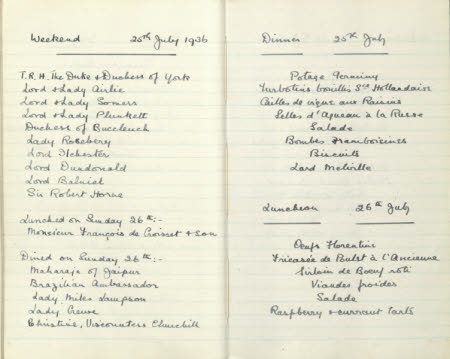 Weekend 25th July 1936
T.R.H. The Duke & Duchess of York
Lord & Lady Airlie
Lord & Lady Somers
Lord & Lady Plunkett
Duchess of Buccleuch
Lady Rosebery
Lord Ilchester
Lord Dundonald
Lord Balniel
Sir Robert Horne
Lunched on Sunday 26th:-
Monsieur François de Croisset & son
Dined on Sunday 26th:-
Maharaja of Jaipur
Brazilian Ambassador
Lady Miles Lampson
Lady Crewe
Christine, Viscountess Churchill
Dinner 25th July
Potage Germiny
Turbotins bouillis Sce Hollandaise
Cailles de vigne aux Raisins
Selles d'Agneau à la Russe
Salade
Bombes Framboisines
Biscuits
Lard Melville
Luncheon 26th July
Oeufs Florentine
Fricasée de Poulet à l'Ancienne
Sirloin de Boeuf roti
Viandes froides
Salade
Raspberry & currant tarts